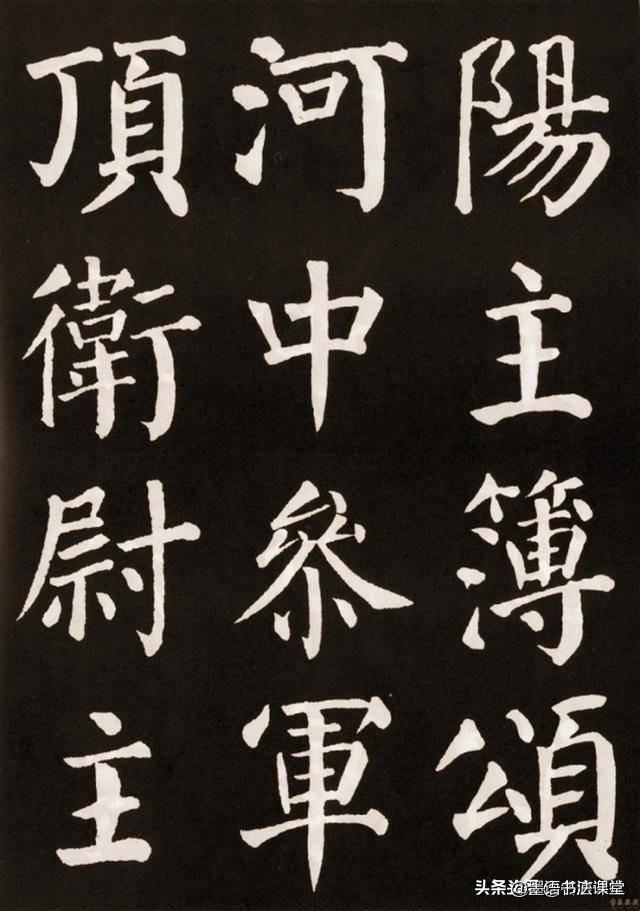 陽主簿頌
河中參軍
頂衛尉主
头条@墨语书法课堂